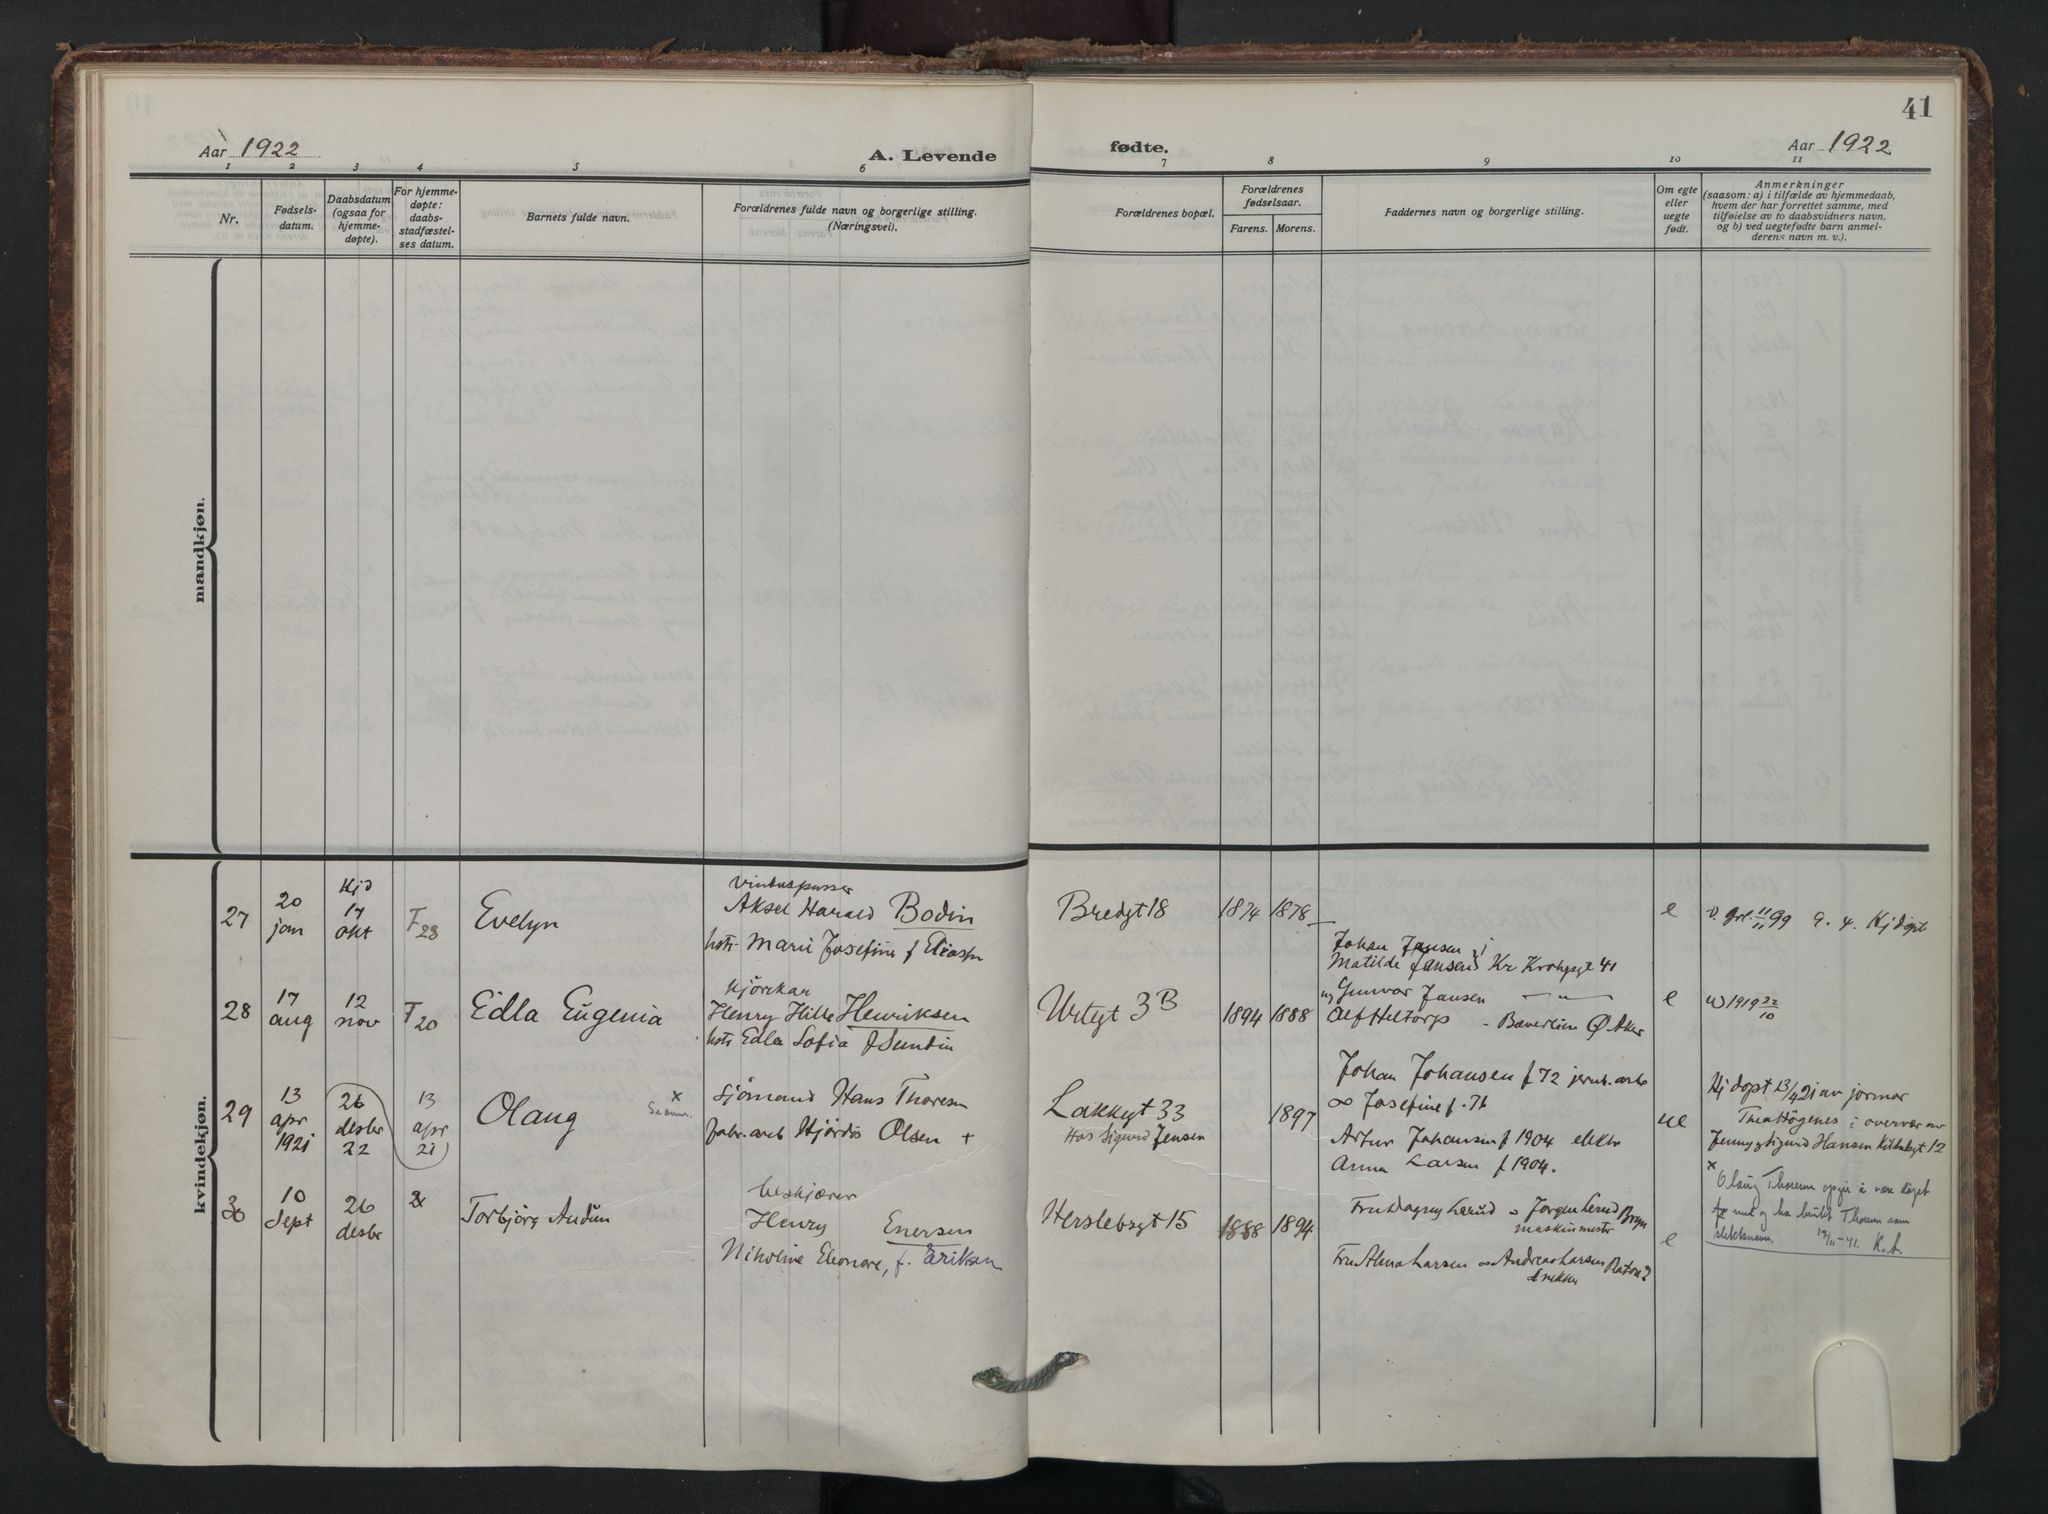 41
Aar 1922
A. Levende
fødte.
Aar 1922
1 2 3 4 5 6 7 8 9 10 11
Nr.
Fødsels-
datum.
Daabsdatum
(ogsaa for
hjemme-
døpte).
For hjemme-
døpte:
daabs-
stadfæstel-
ses datum.
Barnets fulde navn.
Forældrenes fulde navn og borgerlige stilling.
(Næringsvei).
Forældrenes bopæl.
Forældrenes
fødselsaar.
Farens. Morens.
Faddernes navn og borgerlige stilling.
Om egte
eller
uegte
født.
Anmerkninger
(saasom: a) i tilfælde av hjemmedaab,
hvem der har forrettet samme, med
tilføielse av to daabsvidners navn,
og b) ved uegtefødte barn anmel-
derens navn m. v.).
mandkjøn.
kvindekjøn.
27
20
jan
Kjd
17
okt
F 28
Evelyn
vinduspusser
Aksel Harald Bodin
hstr. Marie Josefine f
Bredgt 18
1874 1878
e
v. grl. 11/11 99 9. 4. Kj døpt
28
17
aug
12
nov
F 20
Edla Eugenia
kjørekar
Henry Hille Henriksen
hstr Edla Sofia f Sundin
Urtgt 3B
1894 1888
Johan Jansen
Matilde Jansen Kr Krohgsgt 41
Gunvor Jansen — " —
Alf Heltorp - Ø Aker
e
1919 22/10
29
13
apr
1921
26
desbr
22
13
apr
21
Olaug
x
Sjömand Hans Thoresen
fabr. arb Hjördis Olsen +
Lakkegt 33
Hos Sigurd Jensen
1897
Johan Johansen f 72 jernb. arb
∞ Josefine f. 76
Artur Johansen f 1904 elektr
Anna Larsen f 1904.
ue
Hj döpt 13/4 21 av jormor
Thea Högenes i overvær av
Jenny Sigurd Hansen 12
x
Olaug Thoresen opgir å være døpt
og ha brukt Thoresen som
slektsnavn. 19/11-41. K.A.
30
10
Sept
26
desbr
Torbjörg Audun
beskjærer
Henry Enersen
Nikoline Eleonore, f. Eriksen
Herslebsgt 15
1888 1894
Fru Dagny Lerud ∞ Jørgen Lerud Bryn
maskinmester
Fru Alma Larsen ∞ Andreas Larsen
e